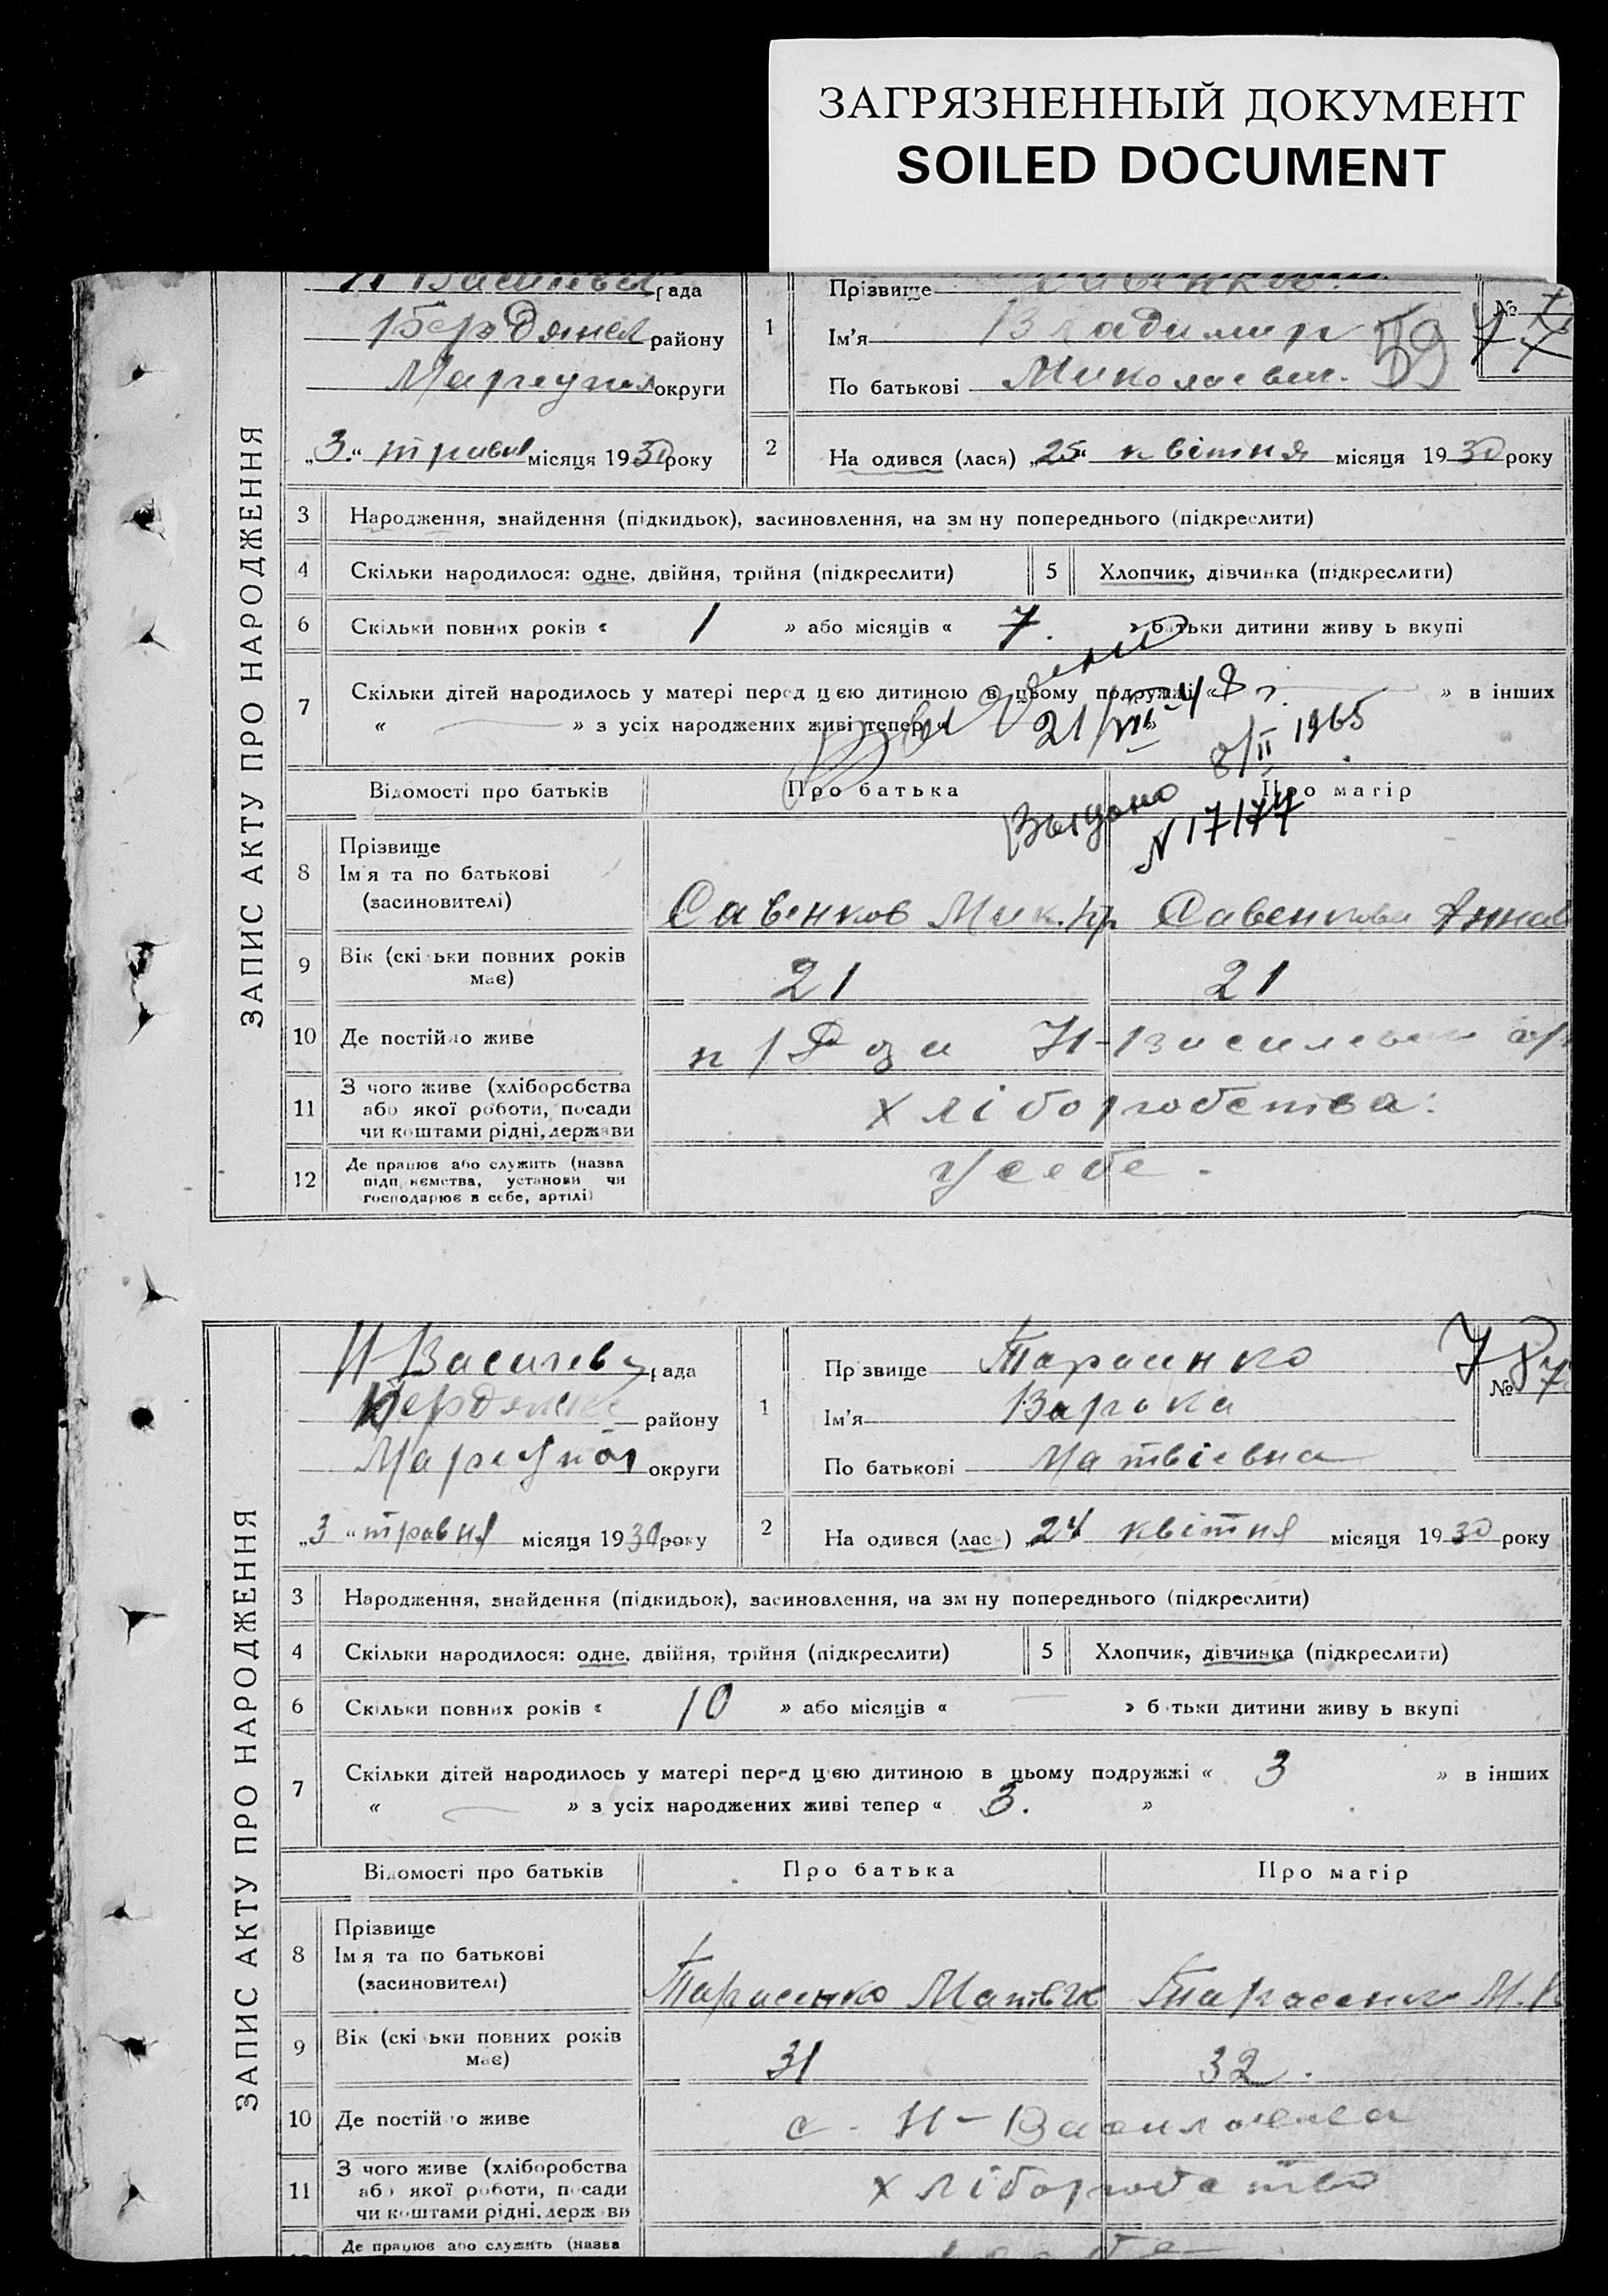 ЗАГРЯЗНЕННЫЙ ДОКУМЕНТ
SOILED DOCUMENT
ЗАПИС АКТУ ПРО НАРОДЖЕННЯ
рада
району
округи
„3.“ травня місяця 1930 року
1
Прізвище
Ім'я Владимир
По батькові Миколаевич.
59
№
2
На одився (лася) „25“ квітня місяця 1930 року
3 Народження, знайдення (підкидьок), засиновлення, на зм ну попереднього (підкреслити)
4 Скільки народилося: одне, двійня, трійня (підкреслити)
5 Хлопчик, дівчинка (підкреслити)
6 Скільки повних років « 1 » або місяців « 7. » батьки дитини живу ь вкупі
7 Скільки дітей народилось у матері перед цією дитиною в цьому подружжі « » в інших
« — » з усіх народжених живі тепер «
21/VII 48 г.
8/II 1965
Выдано
N 17174
Відомості про батьків
Про батька
Про матір
8 Прізвище
Ім'я та по батькові
(засиновителі)
Савенков Мик. Гр
Савенкова Анна
9 Вік (скі ьки повних років
має)
21
21
10 Де постійно живе
11 З чого живе (хліборобства
або якої роботи, посади
чи коштами рідні, держави
хліборобства
12 Де працює або служить (назва
підп иємства, установи чи
господарює в себе, артілі)
у себе.
ЗАПИС АКТУ ПРО НАРОДЖЕННЯ
Н-Васильев рада
району
округи
„3“ травня місяця 1930 року
1
Прізвище Тарасенко
Ім'я
По батькові Матвієвна
78
№
2
На одився (лась) „24 квітня місяця 1930 року
3 Народження, знайдення (підкидьок), засиновлення, на зм ну попереднього (підкреслити)
4 Скільки народилося: одне, двійня, трійня (підкреслити)
5 Хлопчик, дівчинка (підкреслити)
6 Скільки повних років « 10 » або місяців « — » б тьки дитини живу ь вкупі
7 Скільки дітей народилось у матері перед цією дитиною в цьому подружжі « 3 » в інших
« — » з усіх народжених живі тепер « 3. »
Відомості про батьків
Про батька
Про матір
8 Прізвище
Ім я та по батькові
(засиновителі)
Тарасенко Матвій
Тарасенко М.
9 Вік (скі ьки повних років
має)
31
32.
10 Де постій о живе
с. Н-Васильевка
11 З чого живе (хліборобства
або якої роботи, посади
чи коштами рідні, держ ви
хліборобство
Де працює або служить (назва